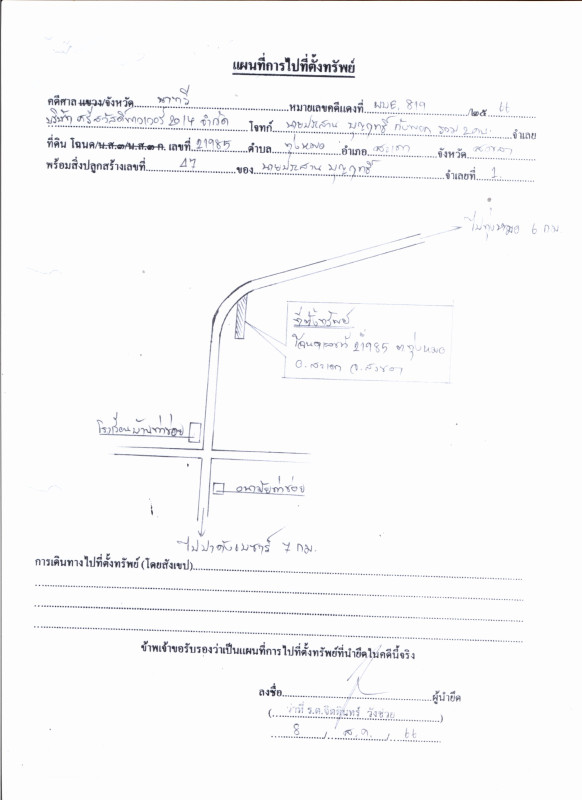 แผนที่การไปที่ตั้งทรัพย์
คดีศาล แขวง/จังหวัด นาทวี หมายเลขคดีแดงที่ ผบE. 819 /๒๕ 66
บริษัท ศรีสวัสดิ์พาวเวอร์ 2014 จำกัด โจทก์ นายประสาน บุญฤทธิ์ กับพวก รวม 2 คน จำเลย
ที่ดิน โฉนด/น.ส.๓/น.ส.๓ ก. เลขที่ 21985 ตำบล ทุ่งหมอ อำเภอ สะเดา จังหวัด สงขลา
พร้อมสิ่งปลูกสร้างเลขที่ 47 ของ นายประสาน บุญฤทธิ์ จำเลยที่ 1
ไปทุ่งหมอ 6 กม.
ที่ตั้งทรัพย์
โฉนดเลขที่ 21985 ต.ทุ่งหมอ
อ.สะเดา จ.สงขลา
โรงเรียนบ้านท่าช่อย
อนามัยท่าช่อย
ไปปาดังเบซาร์ 7 กม.
การเดินทางไปที่ตั้งทรัพย์ (โดยสังเขป)
ข้าพเจ้าขอรับรองว่าเป็นแผนที่การไปที่ตั้งทรัพย์ที่นำยึดในคดีนี้จริง
ลงชื่อ ผู้นำยึด
(ว่าที่ ร.ต.จิตตินทร์ วังช่วย)
8 / ส.ค. / 66